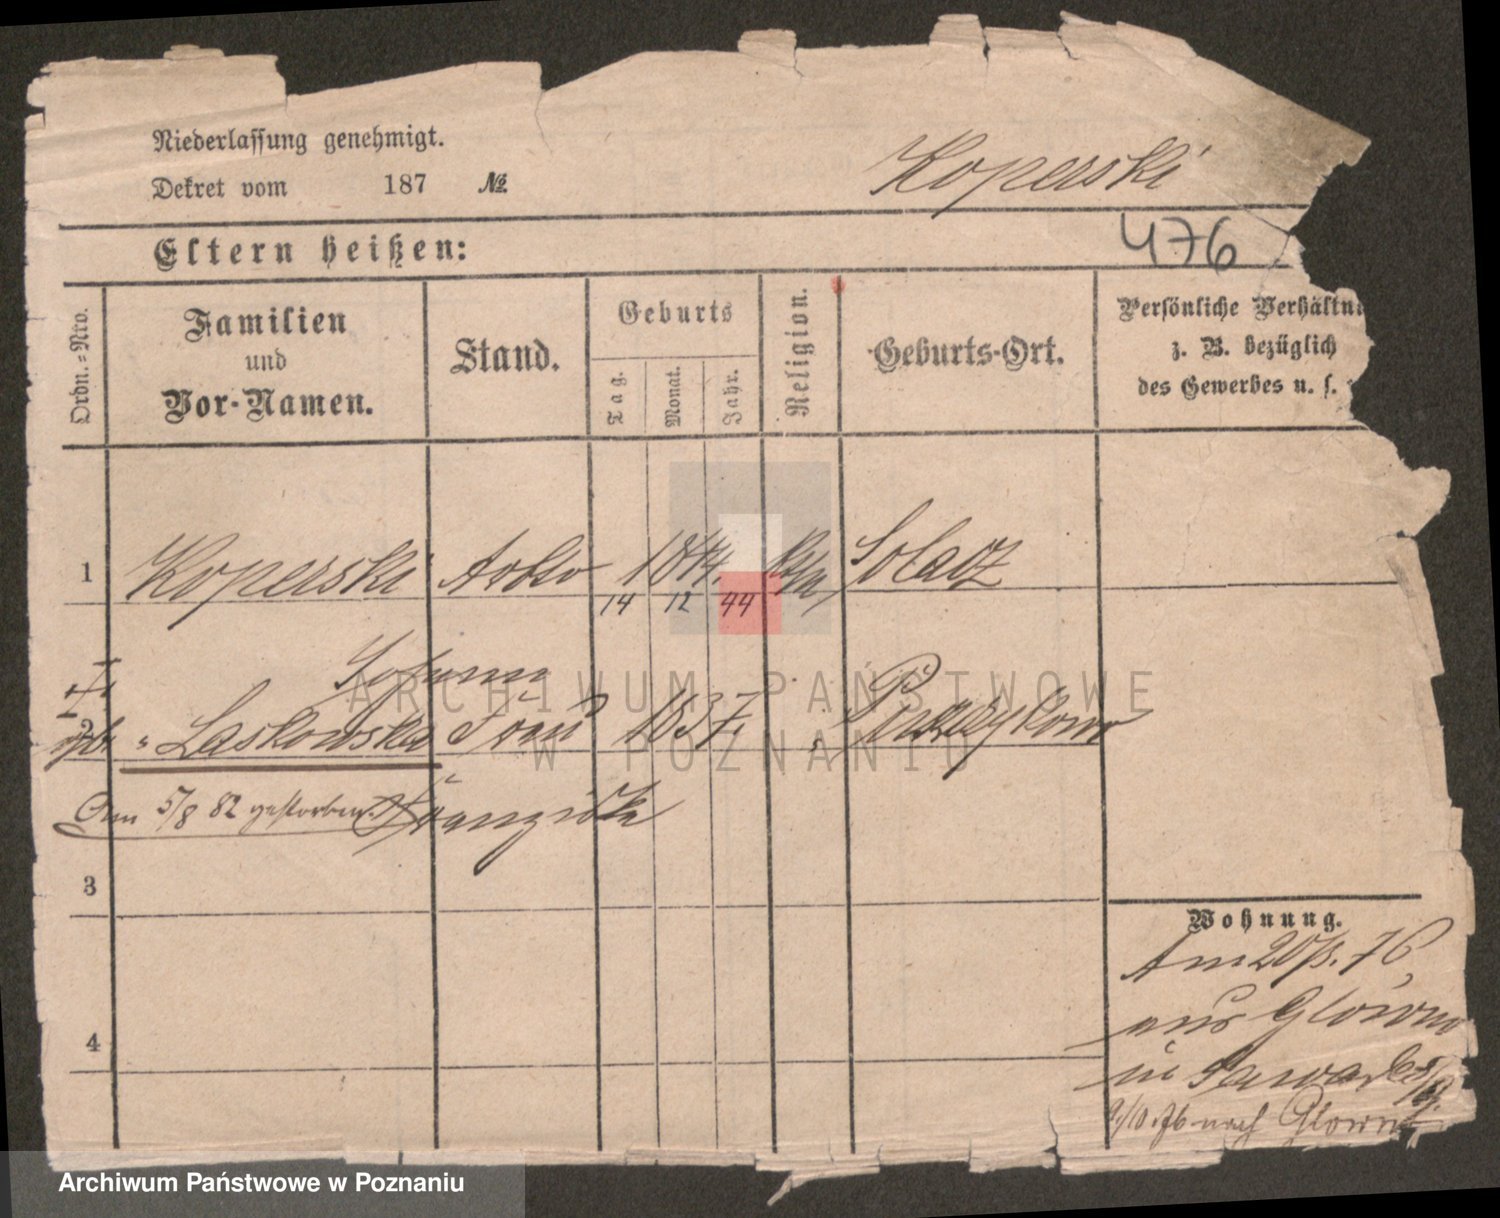 Niederlassung genehmigt.
Dekret vom 187 №
Koperski
Eltern heißen:
476
Ordn.-Nro.
Familien
und
Vor-Namen.
Stand.
Geburts
Tag.
Monat.
Jahr.
Religion.
Geburts-Ort.
Persönliche Verhältn
z. B. bezüglich
des Gewerbes u. s.
1 Koperski 1844. Solacz
14 12 44
Johann
2 Laskowska Frau 1837.
Am 5/8 82 gestorben. Franziska
3
Wohnung.
Am 20/8. 76
aus Glowno
4
in
9/10. 76 nach Glowno
ARCHIWUM PAŃSTWOWE
W POZNANIU
Archiwum Państwowe w Poznaniu